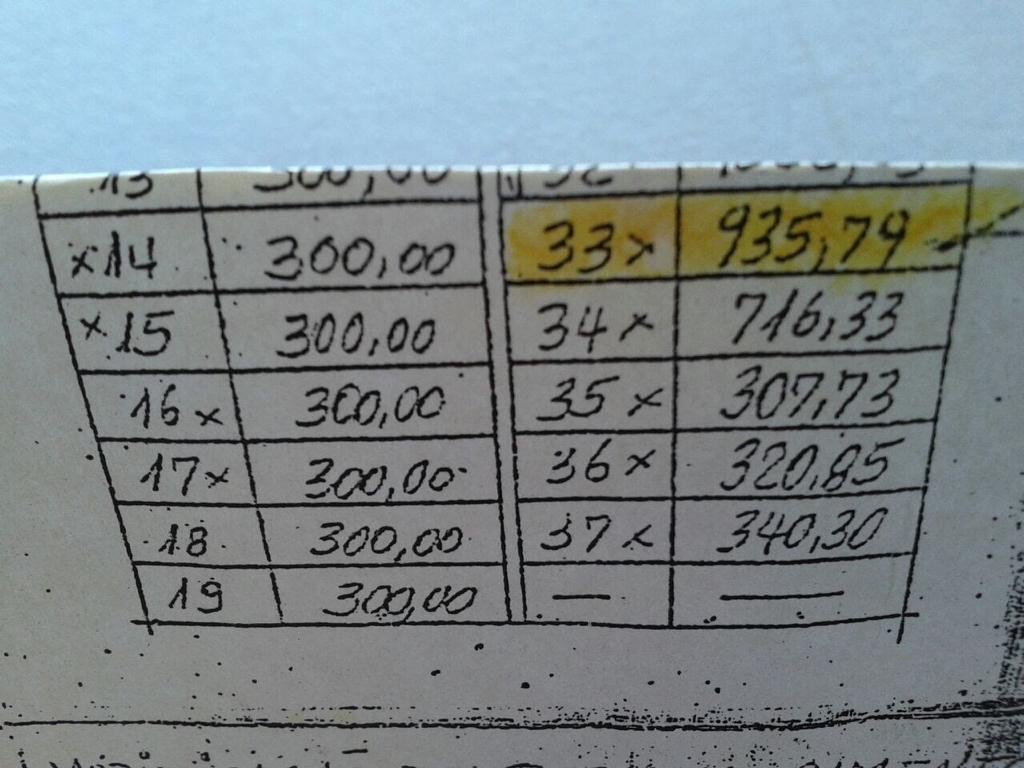 13 300,00 32
x14 300,00 33x 935,79
x15 300,00 34x 716,33
16x 300,00 35x 307,73
17x 300,00 36x 320,85
18 300,00 37x 340,30
19 300,00 — —